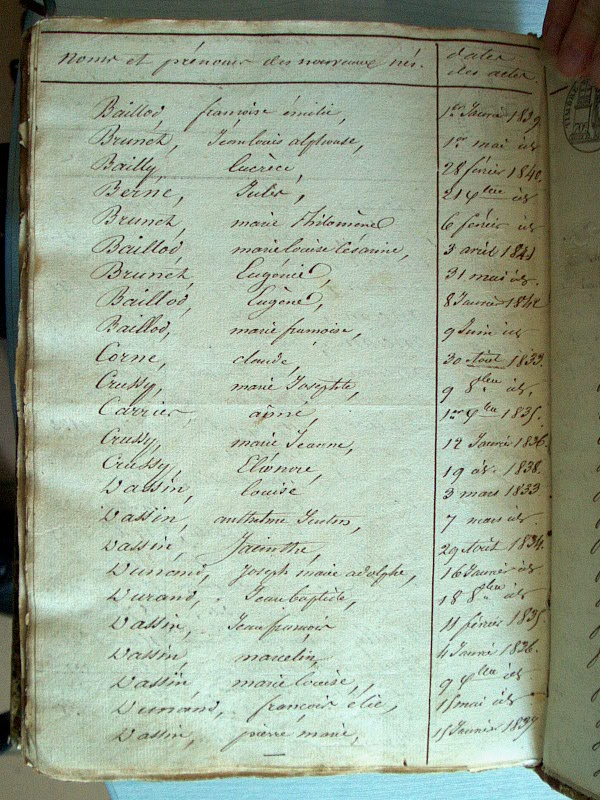 Noms et prénoms des nouveaux nés. dates des actes.
Baillod, françoise émilie, 1er Janvier 1839
Brunet, Jean louis alphonse, 1er mai id
Bailly, lucrèce, 28 février 1840.
Berne, Jules, 21 9bre id
Brunet, marie Philomène 6 février id
Baillod, marie louise Césarine, 3 avril 1841
Brunet, Eugénie, 31 mai id.
Baillod, Eugène, 8 Janvier 1842
Baillod, marie françoise, 9 Juin id
Corne, claude, 30 Août 1833.
Crussy, marie Josephte, 9 8bre id.
Carrier, aimé, 1er 9bre 1835.
Crussy, marie Jeanne, 12 Janvier 1836.
Crussy, Eléonore, 19 id. 1838.
Dassin, louise 3 mars 1833
Dassin, anthelme 7 mars id.
Dassin, Jacinthe, 29 Août 1834.
Dunand, Joseph marie adolphe, 16 Janvier id
Durand, Jean baptiste, 18 8bre id
Dassin, Jean françois 11 février 1835
Dassin, marcelin, 4 Janvier 1836.
Dassin, marie louise, 9 9bre id
Dunand, françois élie, 15 mai id
Dassin, pierre marie, 15 Janvier 1837